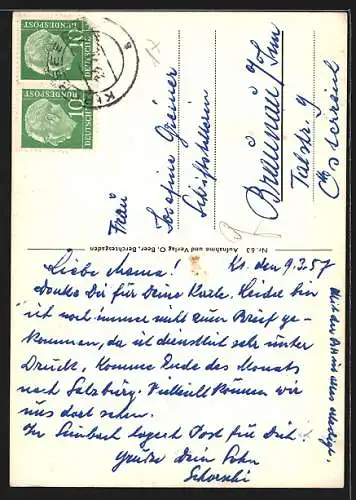 10
DEUTSCHE BUNDESPOST
10
DEUTSCHE BUNDESPOST
Frau
Josefine Greiner
Schriftstellerin
Braunau / Inn
Talstr. 9
Österreich
Nr. 63 Aufnahme und Verlag O. Beer, Berchtesgaden
den 9.3.57
Liebe Mama!
Danke Dir für Deine Karte. Leider bin
ich noch immer nicht zum Brief ge-
kommen, da ich dienstlich sehr unter
Druck. Komme Ende des Monats
nach Salzburg. Vielleicht können wir
uns dort sehen.
In Simbach lagert Post für Dich!
Grüße Dein Sohn